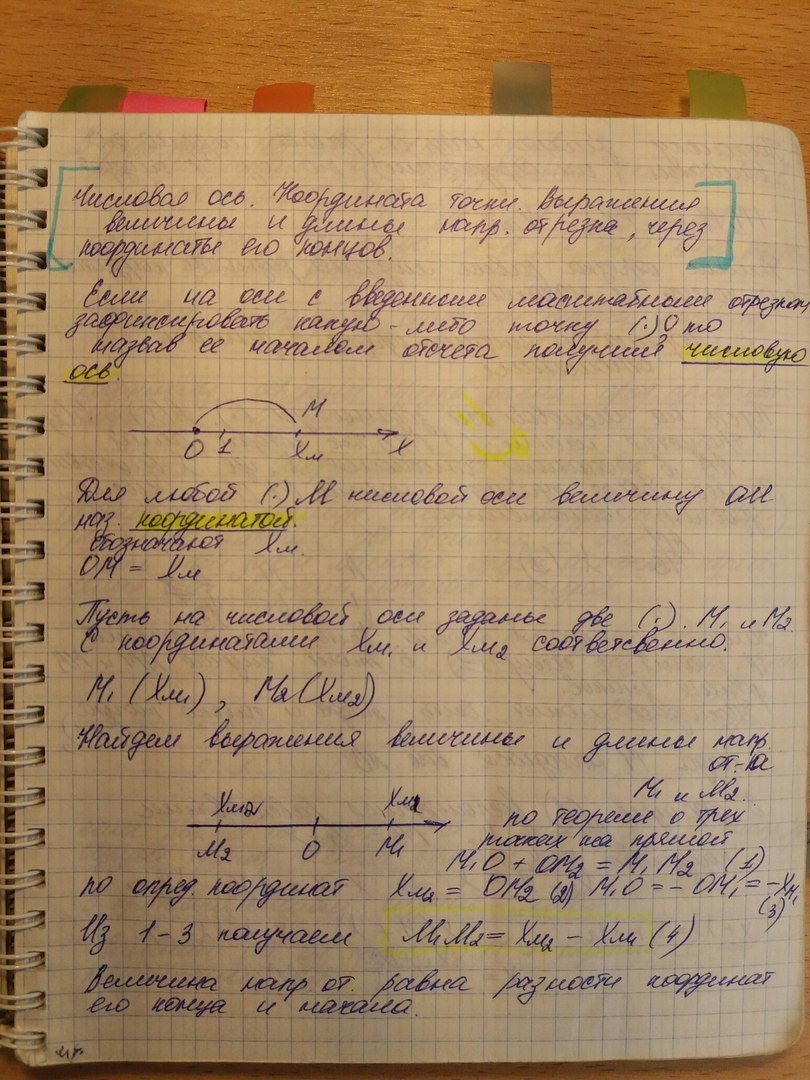 Числовая ось. Координата точки. Выражения
величины и длины напр. отрезка, через
координаты его концов.
Если на оси с введенным масштабным отрезком
зафиксировать какую-либо точку (·) O то
назвав ее началом отсчета получим числовую
ось.
M
O 1 Xм X
Для любой (·) M числовой оси величину OM
наз. координатой.
Обозначают Xм.
OM = Xм
Пусть на числовой оси заданы две (·). M₁ и M₂
С координатами Xм₁ и Xм₂ соответсвенно.
M₁ (Xм₁), M₂ (Xм₂)
Найдем выражения величины и длины напр.
от-ка
M₁ и M₂.
Xм₂ Xм₁
M₂ O M₁
по теореме о трех
точках на прямой
M₁O + OM₂ = M₁M₂ (1)
по опред. координат Xм₂ = OM₂ (2) M₁O = - OM₁ = -Xм₁
(3)
Из 1-3 получаем M₁M₂ = Xм₂ - Xм₁ (4)
Величина напр. от. равна разности координат
его конца и начала.